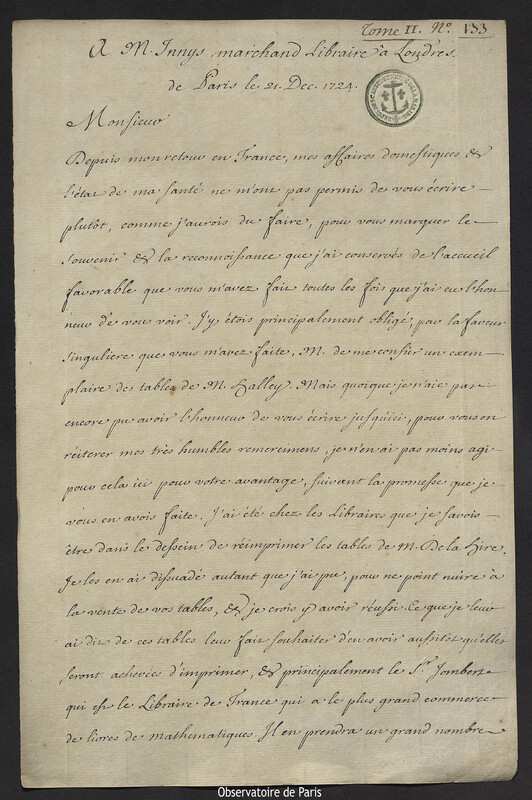 Tome II. N.º 133
A M. Innys, marchand Libraire à Londres.
de Paris le 21. Dec. 1724.
Monsieur
Depuis mon retour en France, mes affaires domestiques &
l'état de ma santé ne m'ont pas permis de vous écrire
plutôt, comme j'aurois du faire, pour vous marquer le
souvenir & la reconnoissance que j'ai conservés de l'accueil
favorable que vous m'avez fait toutes les fois que j'ai eu l'hon
neur de vous voir. J'y étois principalement obligé, par la faveur
singuliere que vous m'avez faite, M. de me confier un exem
plaire de tables de M. Halley. Mais quoique je n'aie pas
encore pu avoir l'honneur de vous écrire jusqu'ici, pour vous en
réiterer mes très humbles remercimens, je n'en ai pas moins agi
pour cela ici pour votre avantage, suivant la promesse que je
vous en avois faite. J'ai été chez les Libraires que je savois
être dans le dessein de réimprimer les tables de M. De la Hire.
Je les en ai dissuadé autant que j'ai pu, pour ne point nuire à
la vente de vos tables, & je crois y avoir réussi. Ce que je leur
ai dit de ces tables leur fait souhaiter d'en avoir aussitôt qu'elles
seront achevées d'imprimer, & principalement le S.r Jombert
qui est le Libraire de France qui a le plus grand commerce
de livres de mathematiques. Il en prendra un grand nombre
Observatoire de Paris